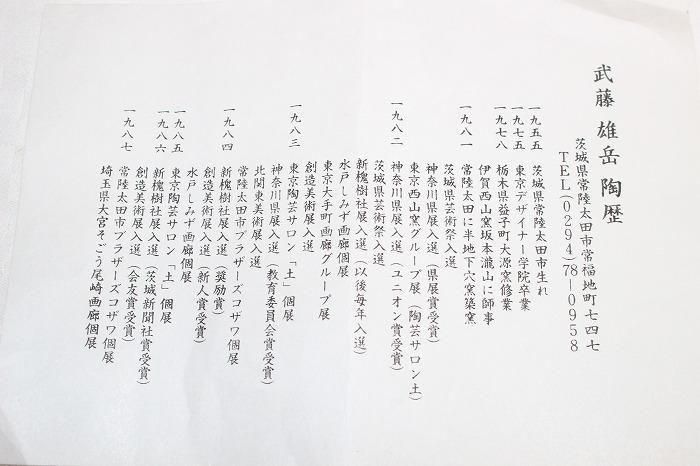 武藤雄岳陶歴
茨城県常陸太田市常福地町七四七
TEL(0294)78-0958
一九五五 茨城県常陸太田市生れ
一九七五 東京デザイナー学院卒業
一九七八 栃木県益子町大源窯修業
伊賀西山窯坂本瀧山に師事
一九八一 常陸太田に半地下穴窯築窯
茨城県芸術祭入選
神奈川県展入選(県展賞受賞)
東京西山窯グループ展(陶芸サロン土)
一九八二 神奈川県展入選(ユニオン賞受賞)
茨城県芸術祭入選
新槐樹社展入選(以後毎年入選)
水戸しみず画廊個展
東京大手町画廊グループ展
創造美術展入選
一九八三 東京陶芸サロン「土」個展
神奈川県展入選(教育委員会賞受賞)
北関東美術展入選
常陸太田市ブラザーズコザワ個展
一九八四 新槐樹社展入選(奨励賞)
創造美術展入選(新人賞受賞)
水戸しみず画廊個展
一九八五 東京陶芸サロン「土」個展
一九八六 新槐樹社展入選(茨城新聞社賞受賞)
創造美術展入選(会友賞受賞)
一九八七 常陸太田市ブラザーズコザワ個展
埼玉県大宮そごう尾崎画廊個展